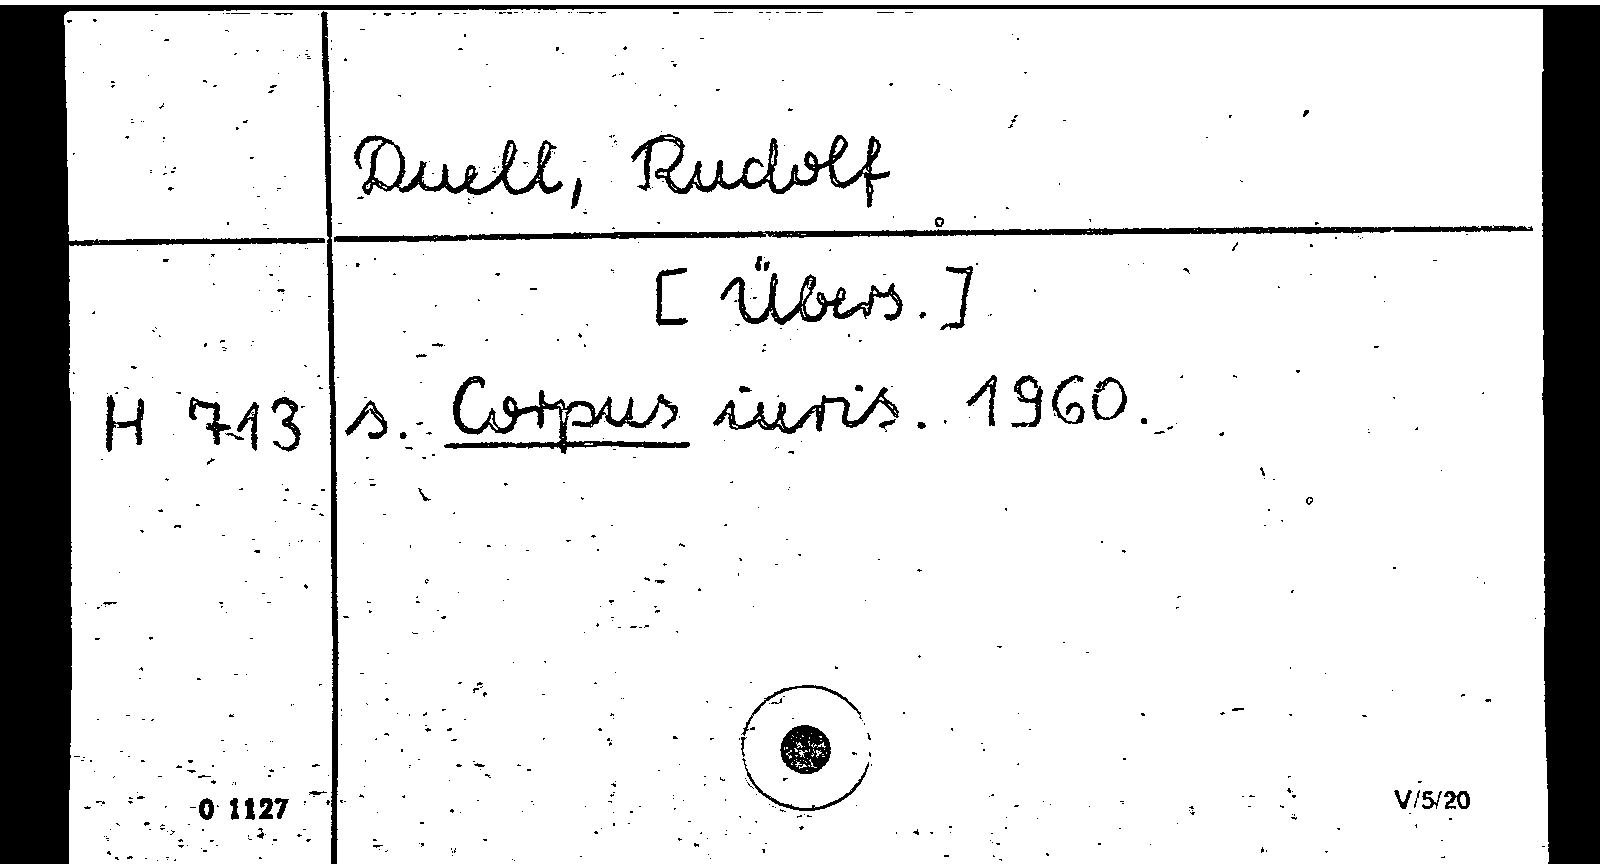 Duell, Rudolf
[Übers.]
H 713 s. Corpus iuris. 1960.
0 1127 V/5/20